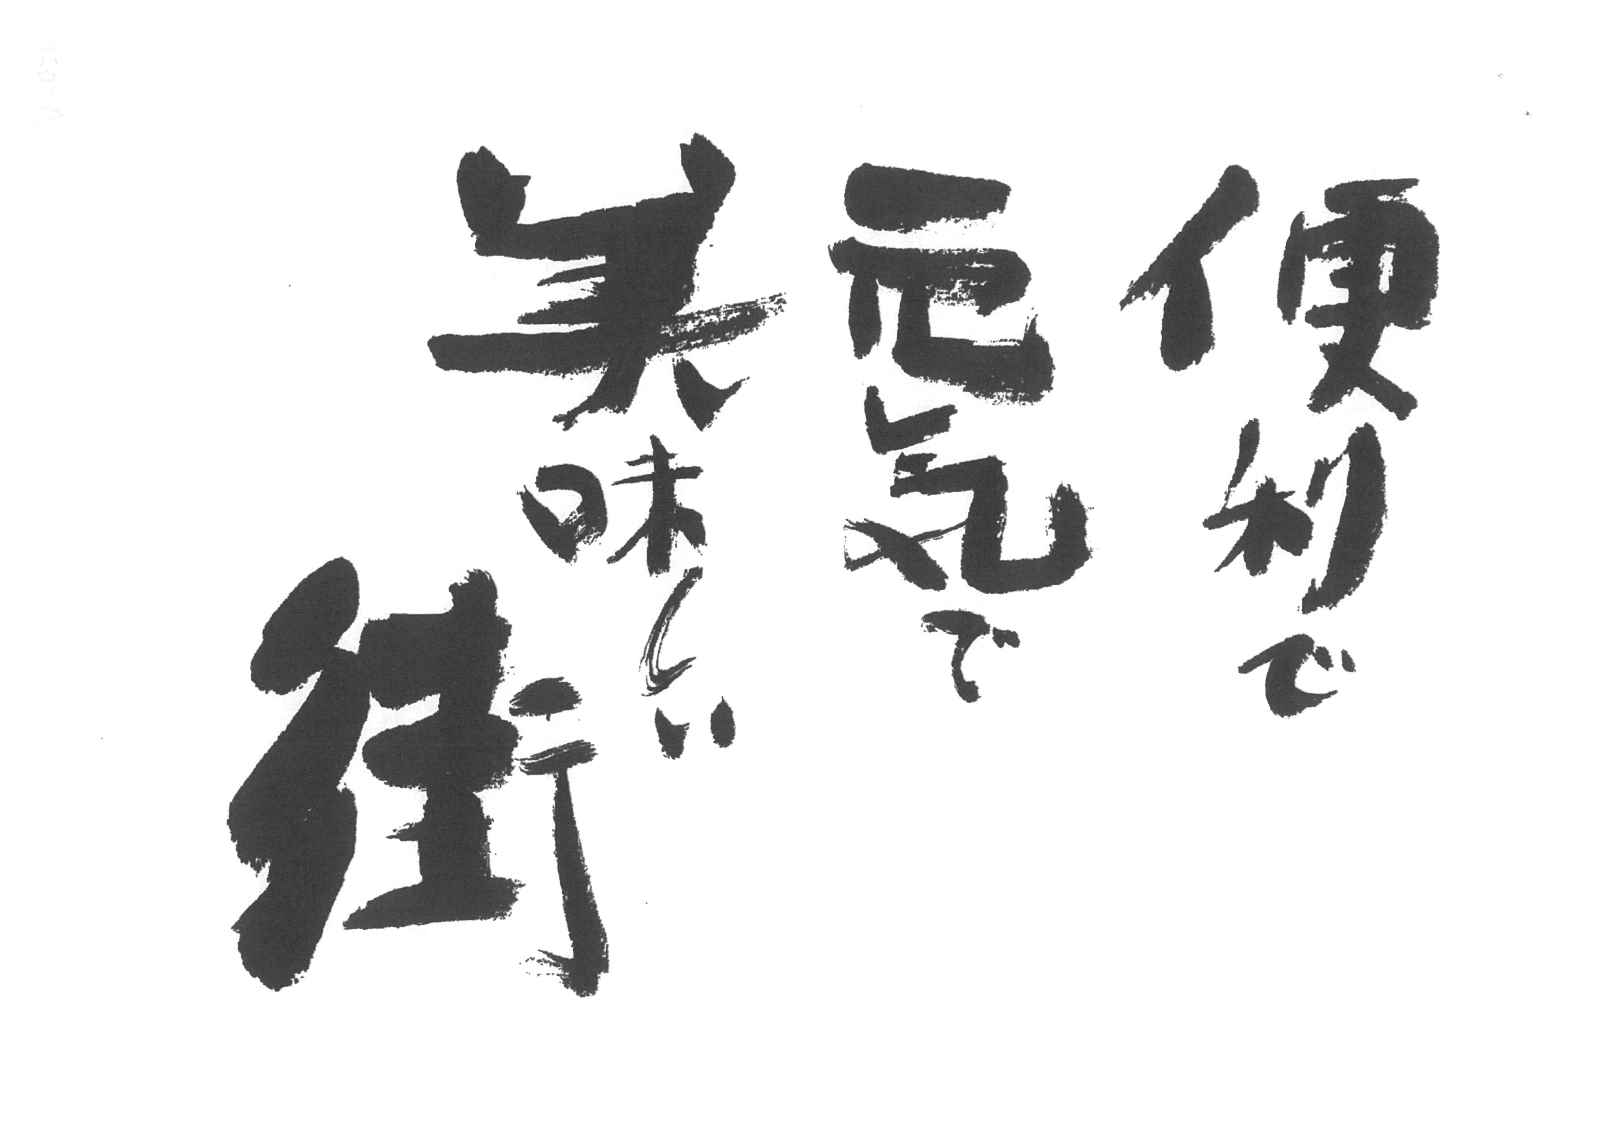 便利で
元気で
美味しい
街